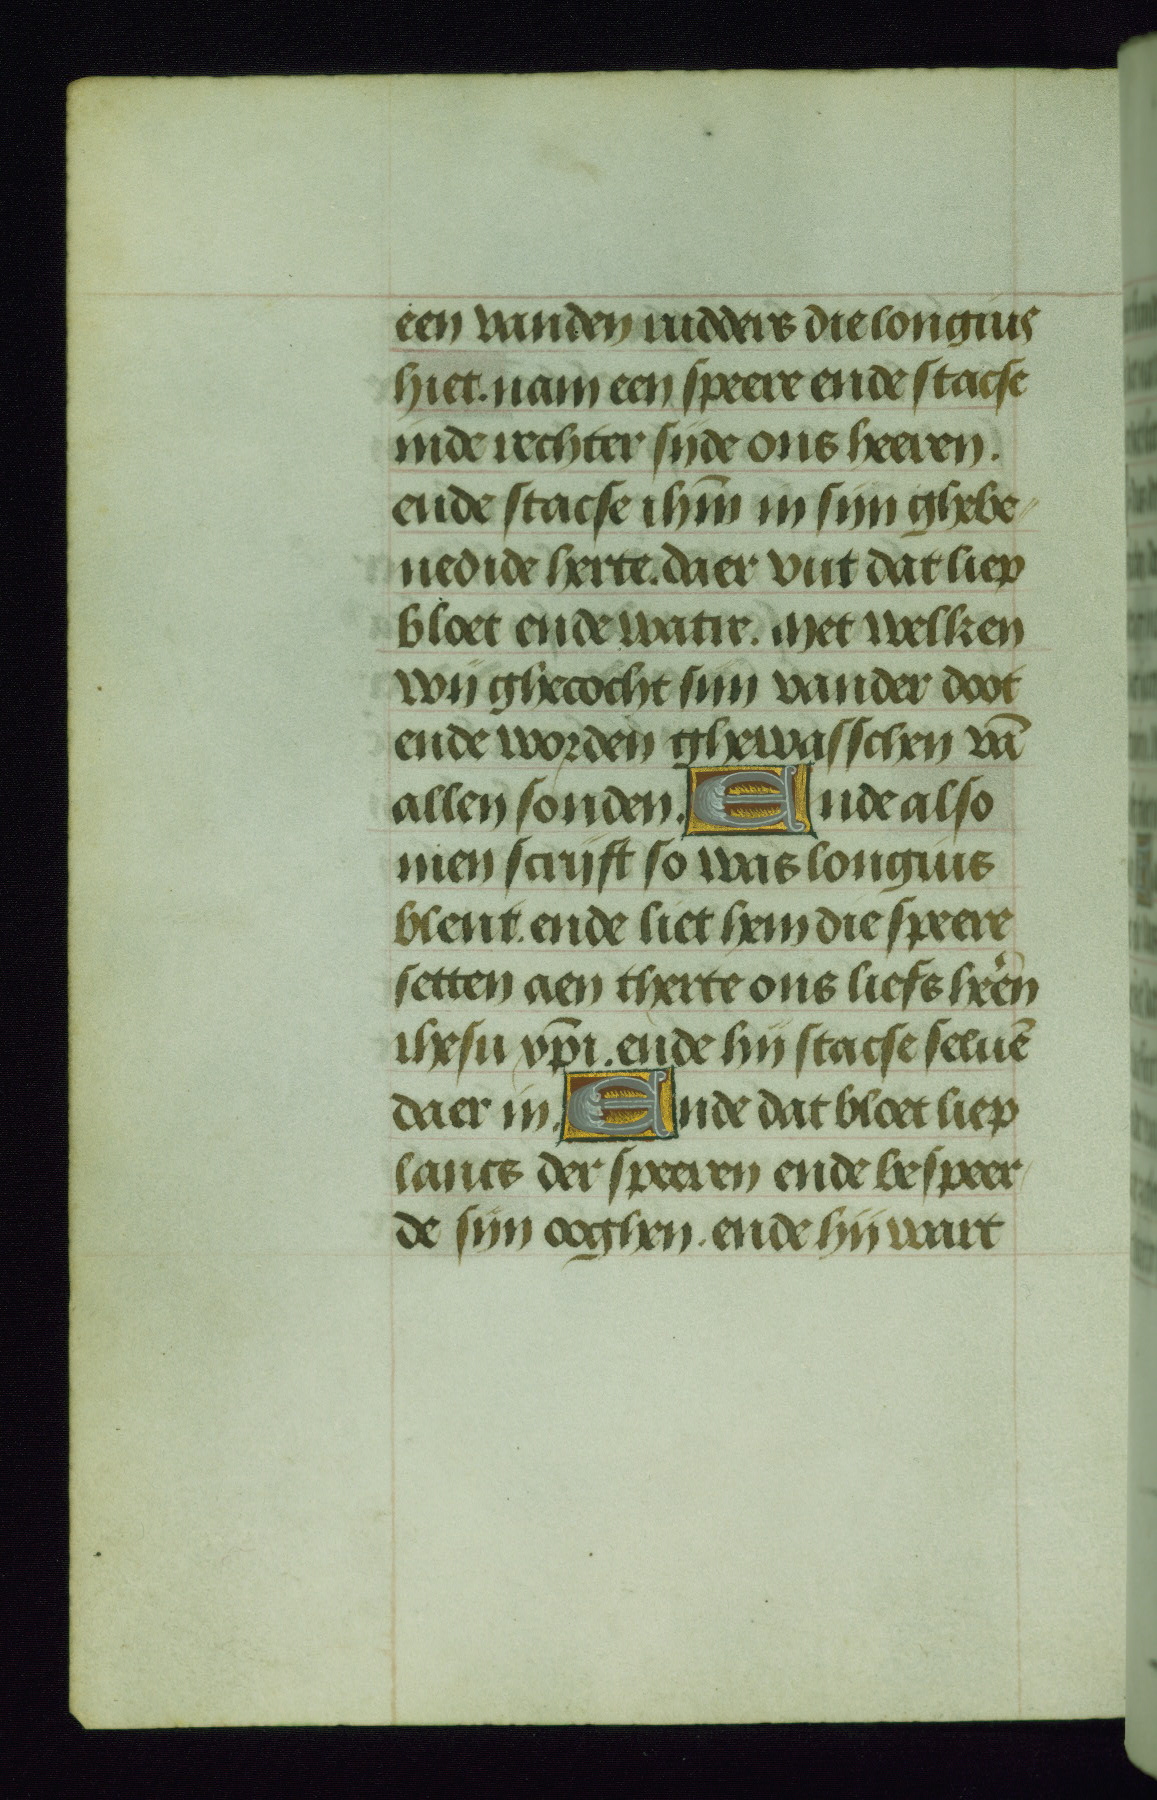 een vanden rudders die longius
hiet. nam een speere ende stacse
inde rechter sijde ons heeren.
ende stacse ihm̄ in sijn ghebe-
nedide herte. daer vut dat liep
bloet ende watre. met welken
wij ghecocht sijn vander doot
ende worden ghewasschen vā
allen sonden. Ende also
men scrijft so was longius
blent. ende liet hem die speere
setten aen therte ons liefs hēen
ihesu xp̄i. ende hij stacse seluē
daer in. Ende dat bloet liep
lancs der speeren ende bespeer-
de sijn ooghen. ende hij wart